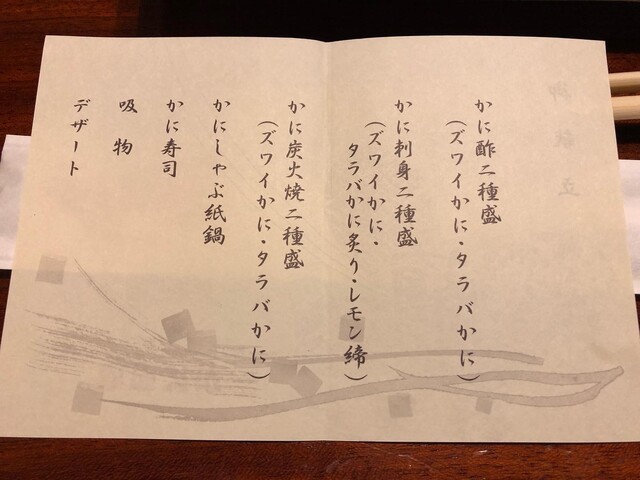 御献立
かに酢二種盛
（ズワイかに・タラバかに）
かに刺身二種盛
（ズワイかに・
タラバかに炙り・レモン締）
かに炭火焼二種盛
（ズワイかに・タラバかに）
かにしゃぶ紙鍋
かに寿司
吸物
デザート